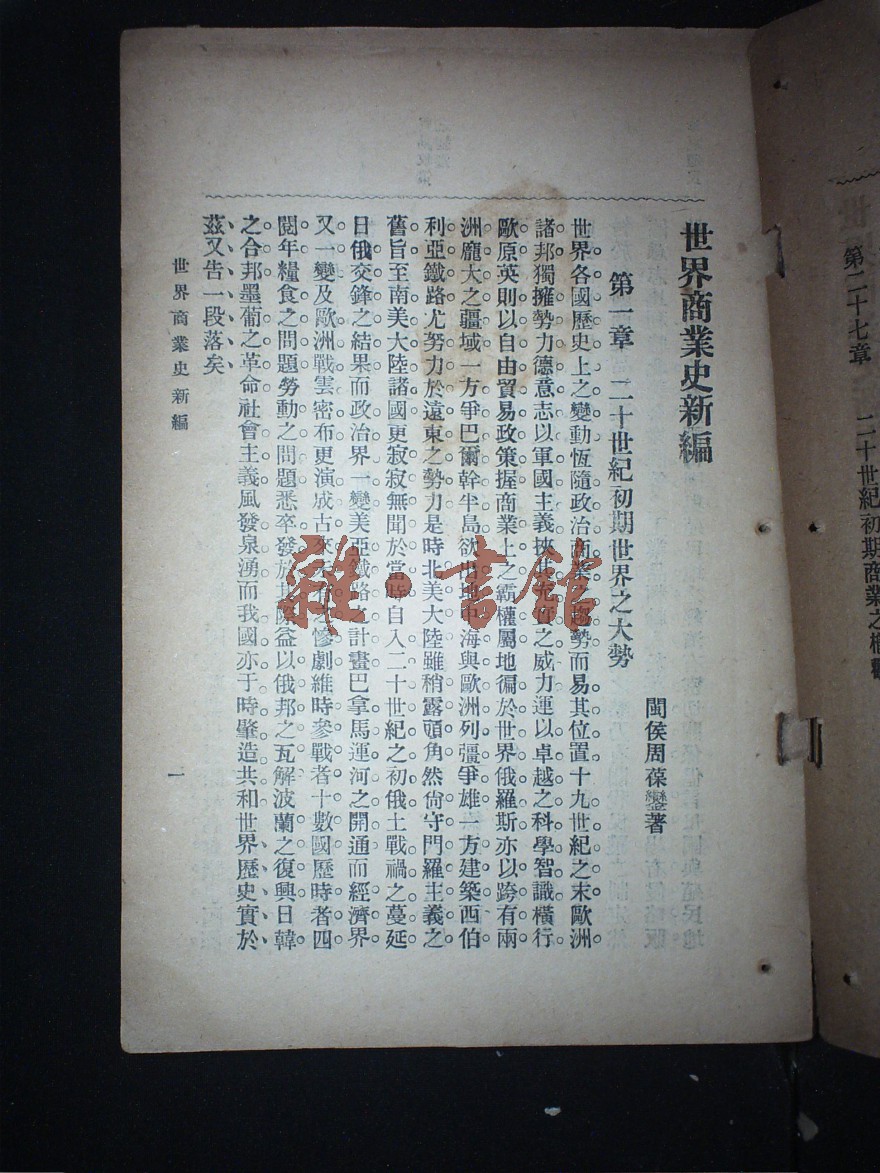 世界商業史新編
閩侯周葆鑾著
第一章 二十世紀初期世界之大勢
世界各國歷史上之變動恆隨政治商業之趨勢而易其位置十九世紀之末歐洲
諸邦獨擁勢力德意志以軍國主義挾其充實之威力運以卓越之科學智識橫行
歐原英則以自由貿易政策握商業上之霸權屬地徧於世界俄羅斯亦以跨有兩
洲龐大之疆域一方爭巴爾幹半島欲出地中海與歐洲列彊爭雄一方建築西伯
利亞鐵路尤努力於遠東之勢力是時北美大陸雖稍露頭角然尙守門羅主義之
舊旨至南美大陸諸國更寂寂無聞於當時自入二十世紀之初俄土戰禍之蔓延
日俄交鋒之結果而政治界一變美亞鐵路之計畫巴拿馬運河之開通而經濟界
又一變及歐洲戰雲密布更演成古來未有之慘劇維時參戰者十數國歷時者四
閱年糧食之問題勞動之問題悉卒發於其際益以俄邦之瓦解波蘭之復興日韓
之合邦墨葡之革命社會主義風發泉湧而我國亦于時肇造共和世界歷史實於
茲又告一段落矣
世界商業史新編
一
第二十七章 二十世紀初期商業之概觀
雜·書館